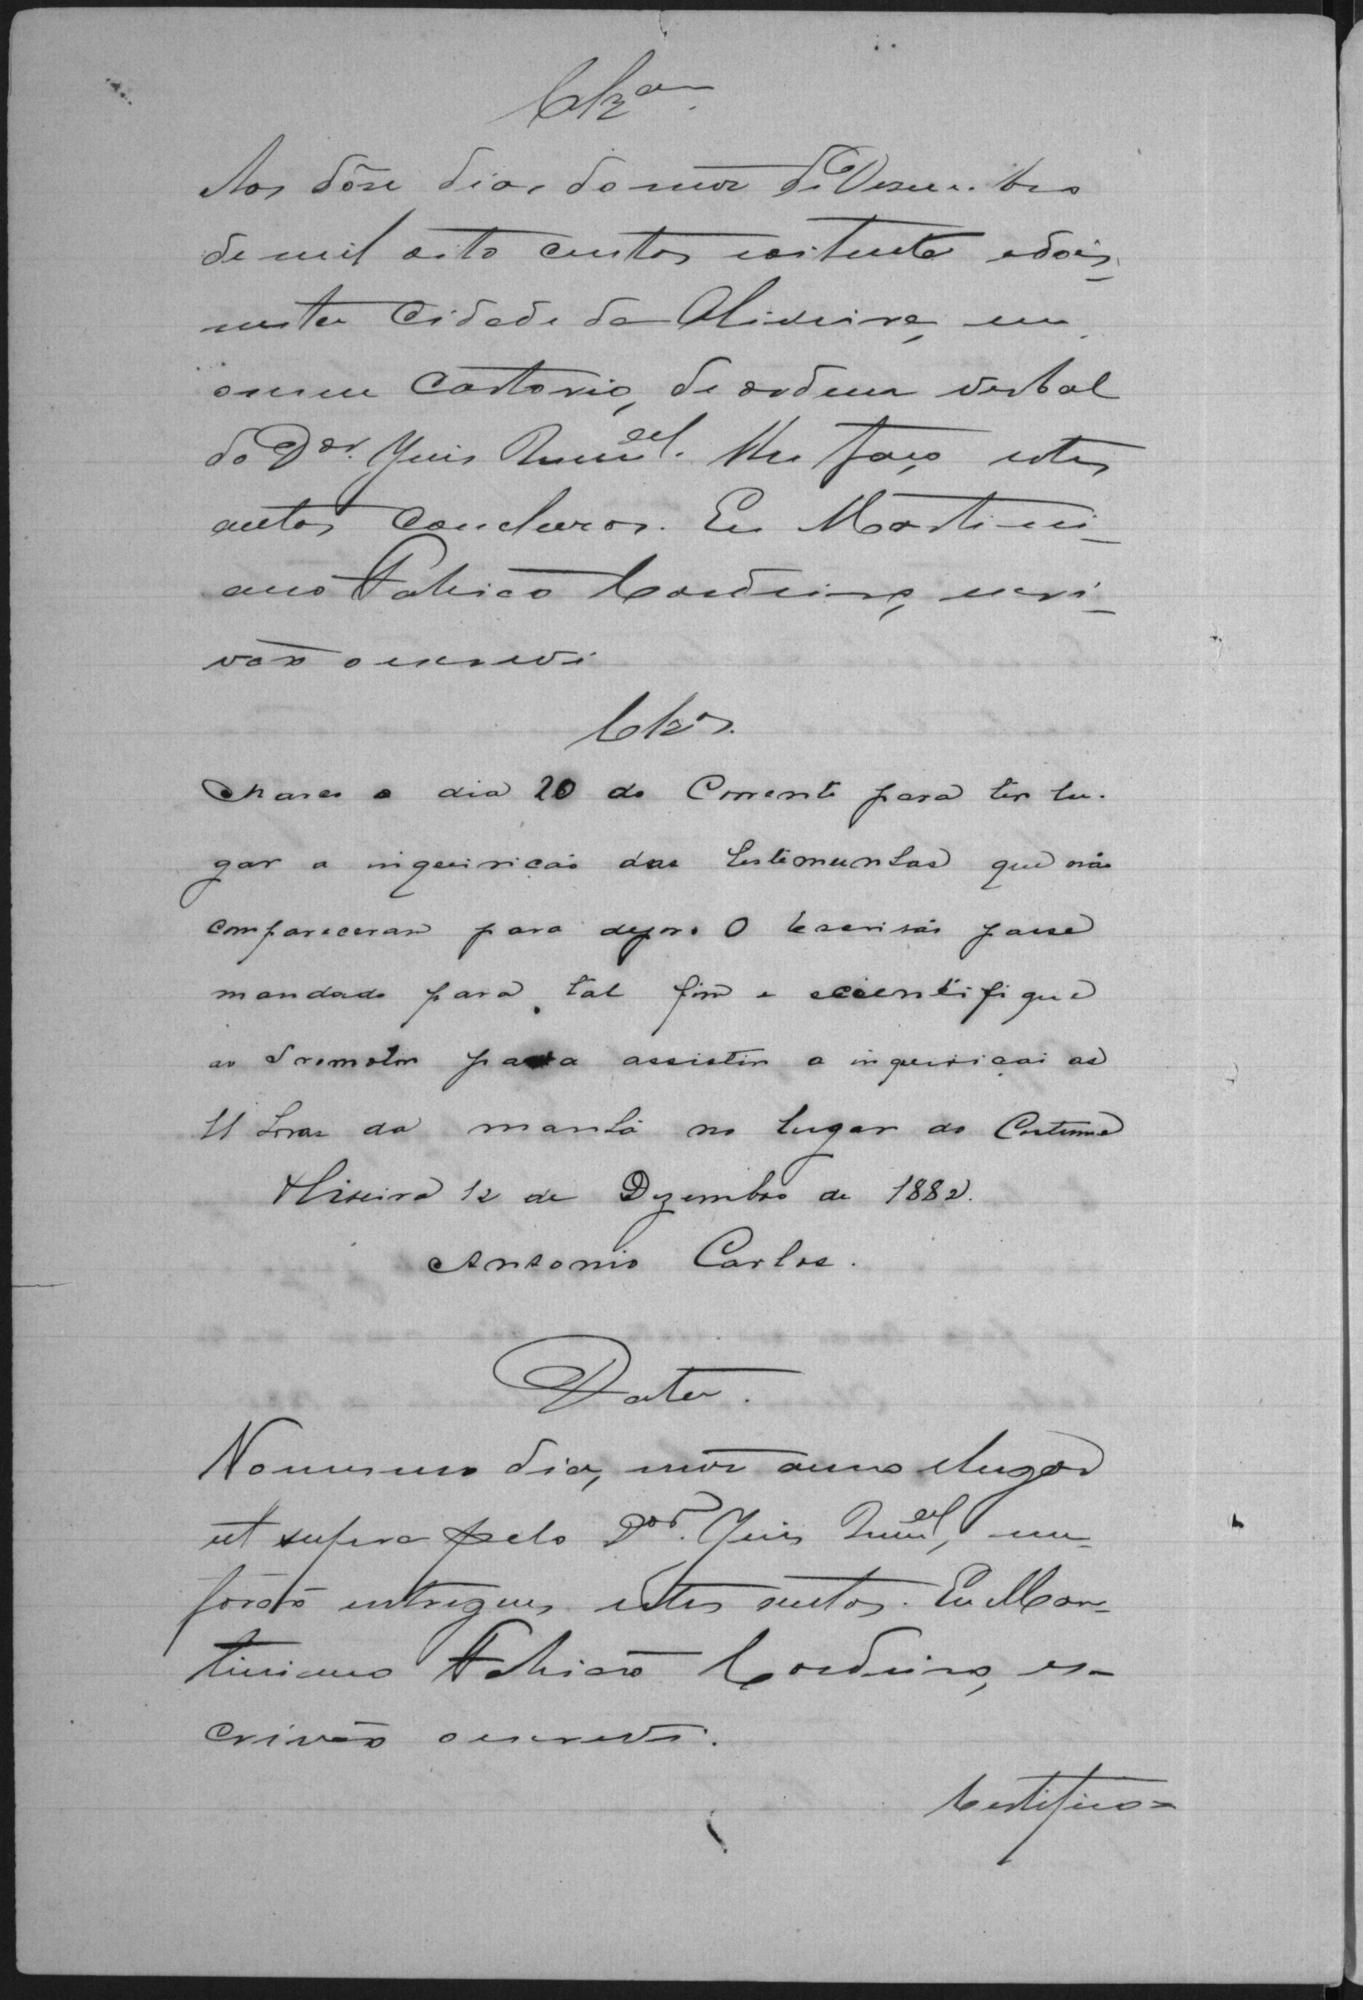 Clz.am
Aos dôse dias do mez de Desembro
de mil oito centos e oitenta e dois,
nesta Cidade da Oliveira, em
o meu Cartorio, de ordem verbal
do Dor. Juis Munal. lhe faço estes
autos conclusos. Eu Martini-
ano Fabricio Cordeiro, escri-
vão o escrevi
Clzos.
Marco o dia 20 do Corrente para ter lu-
gar a inquirição das testemunhas que não
compareceram para depor. O Escrivão passe
mandado para tal fim e scientifique
ao Promotor para assistir a inquirição as
11 horas da manhã no lugar do Costume
Oliveira 12 de Dezembro de 1882.
Antonio Carlos.
Data.
No mesmo dia, mez anno e lugar
ut supra pelo Dor. Juis Munal, me
forão entregues estes autos. Eu Mar-
tiniano Fabricio Cordeiro, es-
crivão o escrevi.
Certifico=